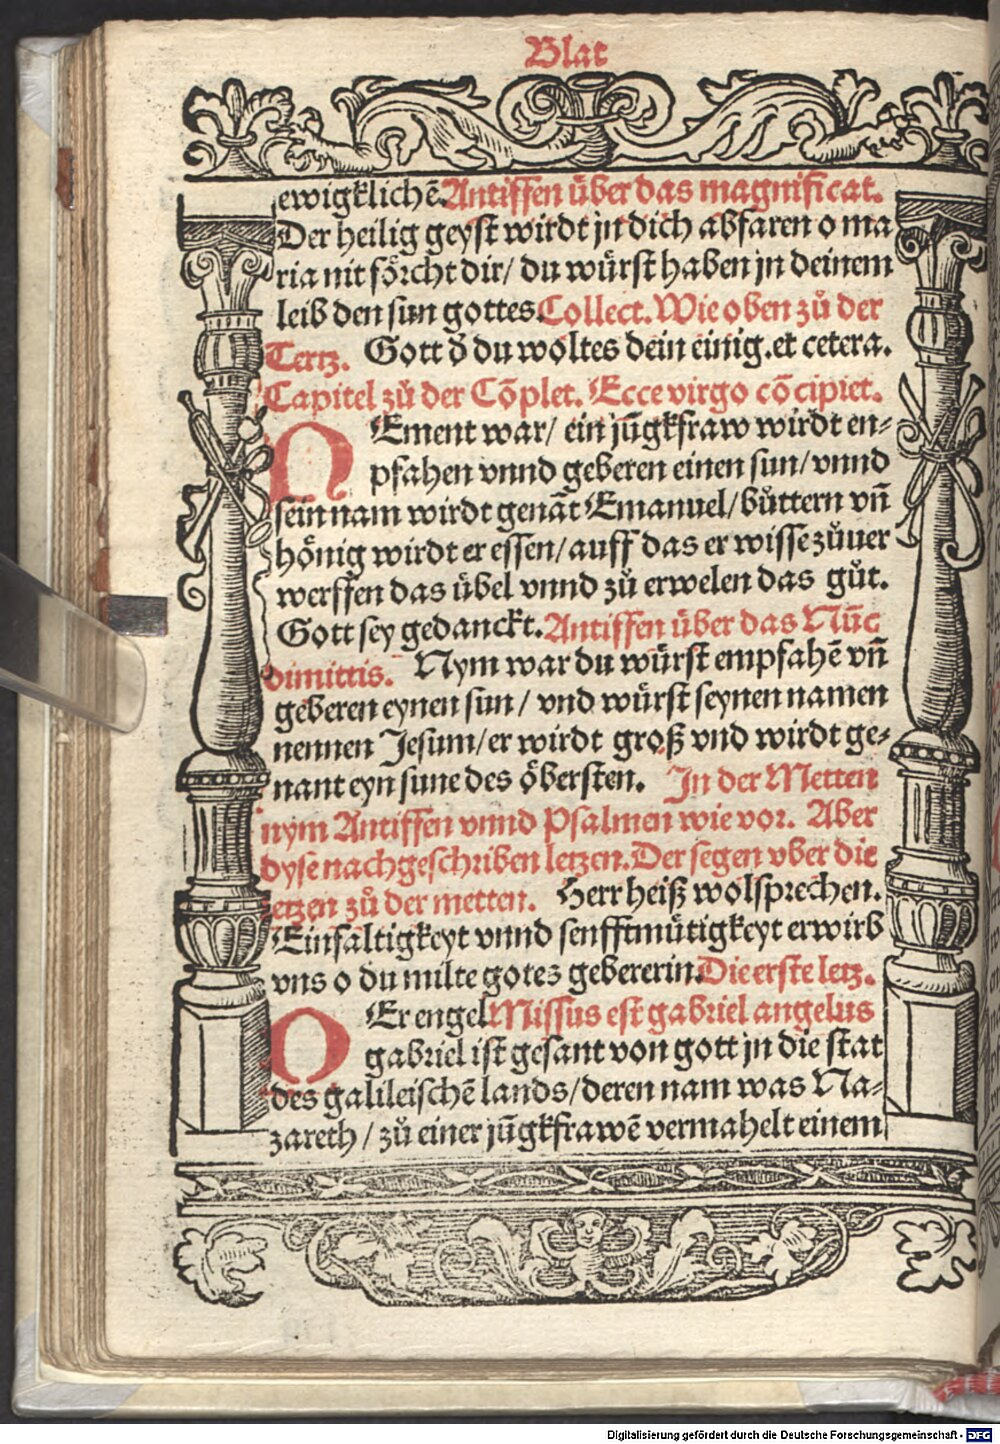 Blat
ewigklichē. Antiffen über das magnificat.
Der heilig geyst wirdt jn dich abfaren o ma
ria nit förcht dir/ du würst haben jn deinem
leib den sun gottes. Collect. Wie oben zů der
Tertz. Gott d̕ du woltes dein einig. et cetera.
Capitel zů der Cōplet. Ecce virgo cōcipiet.
NEment war/ ein jūgkfraw wirdt en⸗
pfahen vnnd geberen einen sun/ vnnd
sein nam wirdt genāt Emanuel/ bůttern vn̄
hönig wirdt er essen/ auff das er wisse zůuer
werffen das übel vnnd zů erwelen das gůt.
Gott sey gedanckt. Antiffen über das Nūc
dimittis. Nym war du würst empfahē vn̄
geberen eynen sun/ vnd würst seynen namen
nennen Jesum/ er wirdt groß vnd wirdt ge⸗
nant eyn sune des öbersten. In der Metten
nym Antiffen vnnd Psalmen wie vor. Aber
dyse nachgeschriben letzen. Der segen vber die
letzen zů der metten. Herr heiß wolsprechen.
Einfaltigkeyt vnnd senfftmütigkeyt erwirb
vns o du milte gotes gebererin. Die erste letz.
DEr engel Missus est gabriel angelus
gabriel ist gesant von gott jn die stat
des galileischē lands/ deren nam was Na⸗
zareth/ zů einer jūgkfrawē vermahelt einem
Digitalisierung gefördert durch die Deutsche Forschungsgemeinschaft - DFG